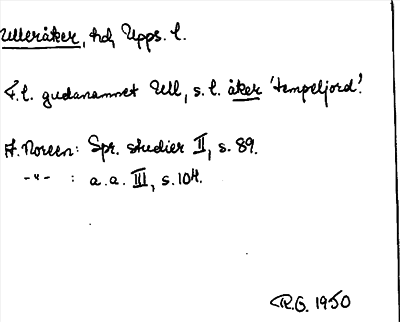 Ulleråker, hd, Upps. l.
F.l. gudanamnet Ull, s.l. åker 'tempeljord'.
A. Noreen: Spr. studier II, s. 89.
-"- : a.a. III, s. 104.
R.G. 1950